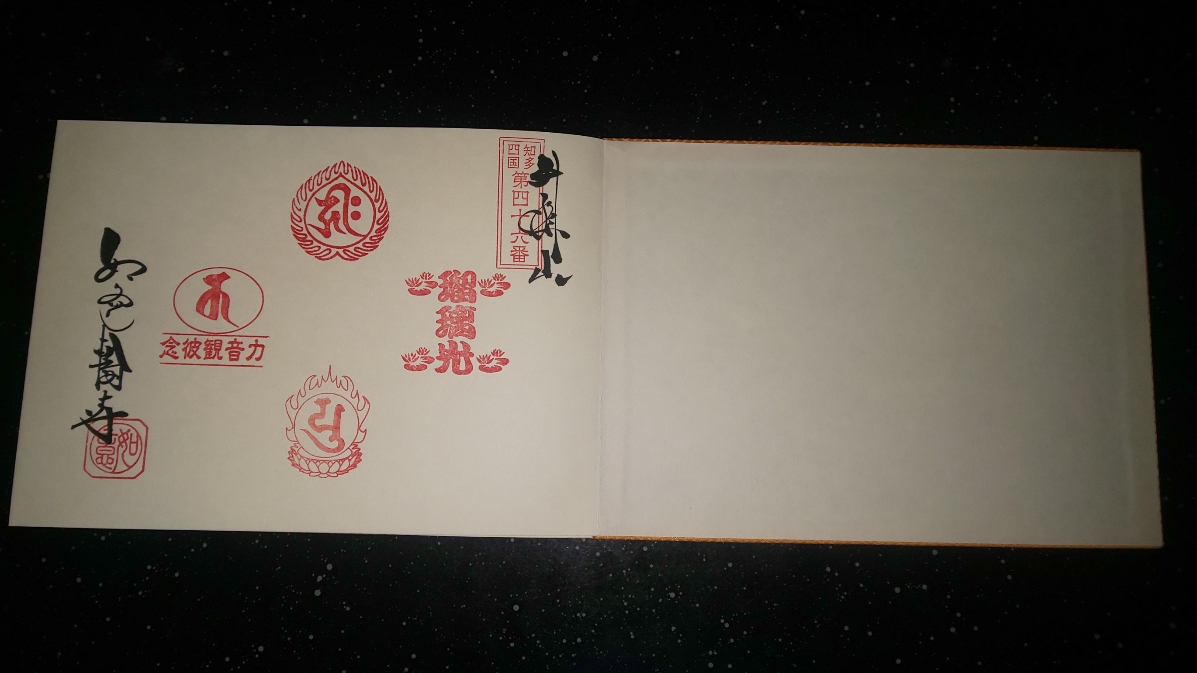 知多
四国
第四十六番
井際山
瑠璃光
念彼観音力
如意輪寺